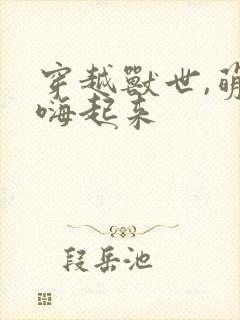 穿越獸世,萌
嗨起来
段岳池